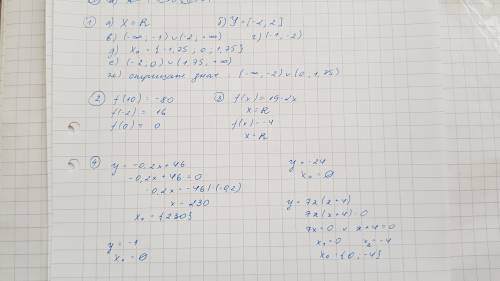 ① а) X = R   б) Y = [-2; 2]
в) (-∞; -1) ∪ (-2; +∞)   г) (-1; -2)
д) X₀ = {-1,75; 0; 1,75}
е) (-2; 0) ∪ (1,75; +∞)
ж) отрицат знач: (-∞; -2) ∪ (0; 1,75)
② f(10) = -80
f(-2) = 16
f(0) = 0
③ f(x) = 19-2x
x = R
f(x) = -4
x = R
④ y = -0,2x+46
-0,2x+46=0
-0,2x = -46 | (-0,2)
x = 230
x₀ = {230}
y = -1
x₀ = Ø
y = -24
x₀ = Ø
y = 7x(x+4)
7x(x+4) = 0
7x=0 ∨ x+4=0
x₁=0   x₂=-4
x₀={0; -4}